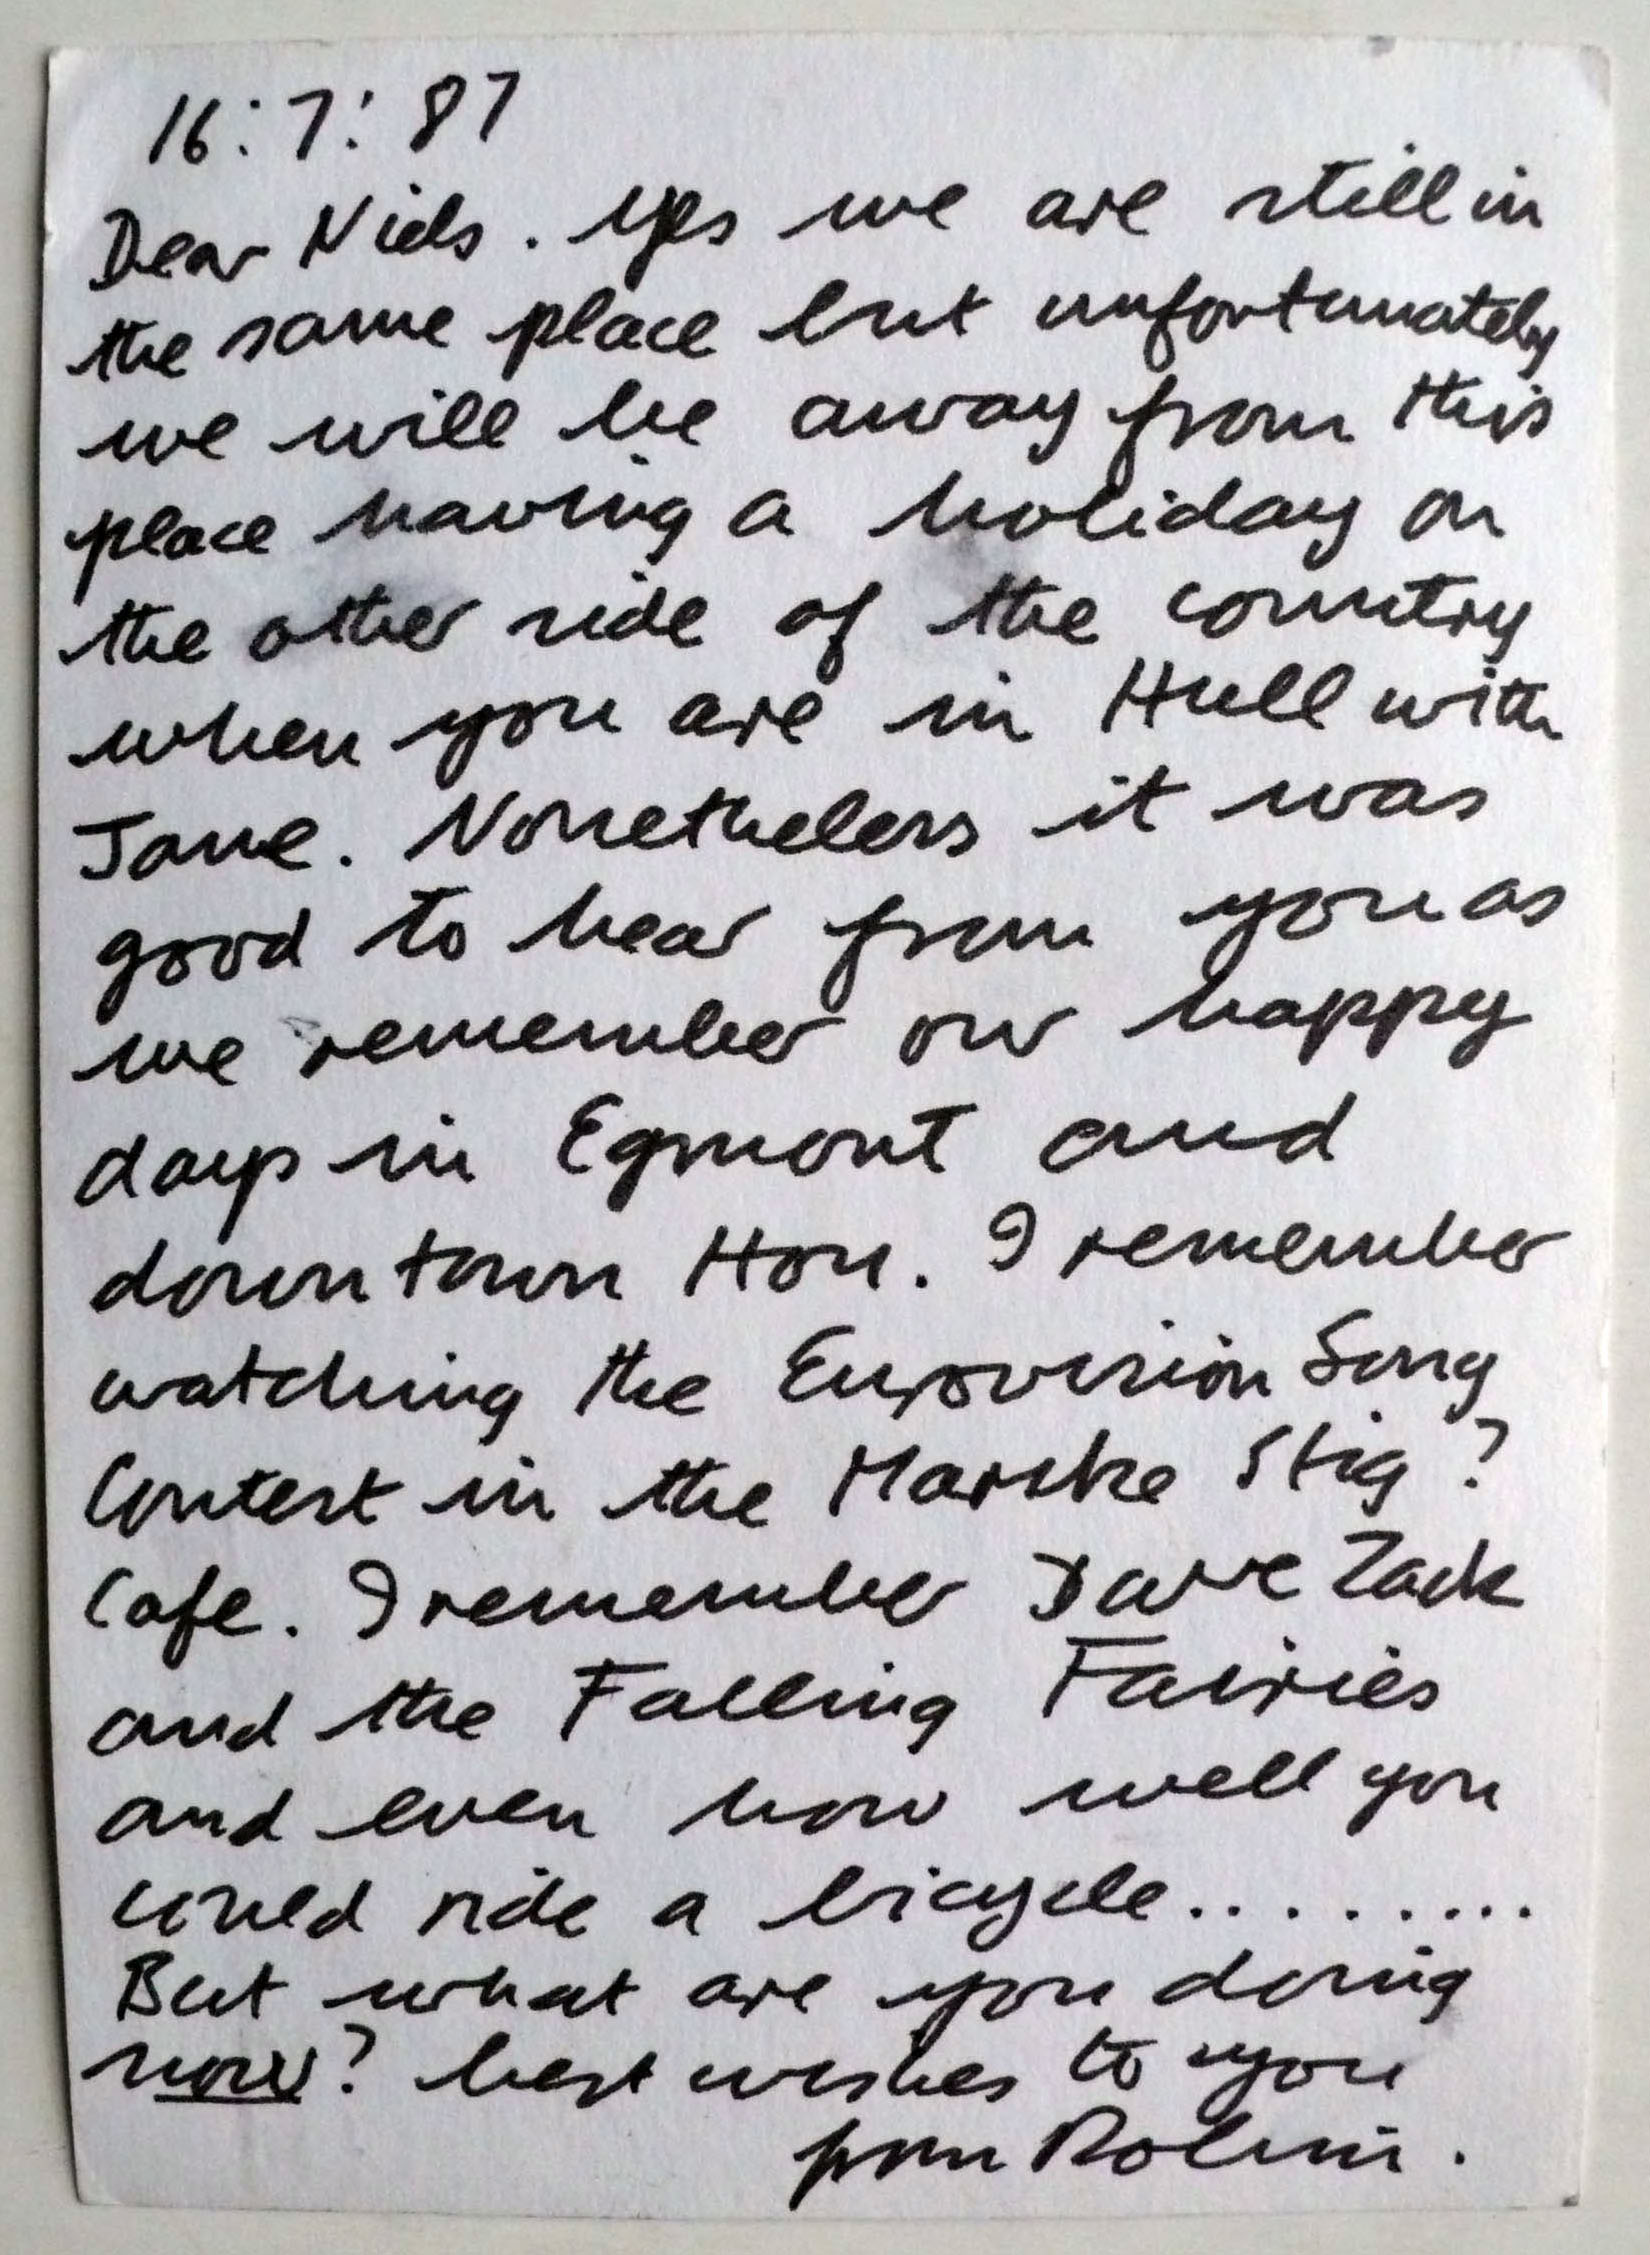 16:7:87
Dear Niels. Yes we are still in
the same place but unfortunately
we will be away from this
place having a holiday on
the other side of the country
when you are in Hull with
Jane. Nonetheless it was
good to hear from you as
we remember our happy
days in Egmont and
downtown Hou. I remember
watching the Eurovision Song
Contest in the Marske Stig?
Cafe. I remember Dave Zack
and the Falling Fairies
and even how well you
could ride a bicycle.........
But what are you doing
now? best wishes to you
from Robin.